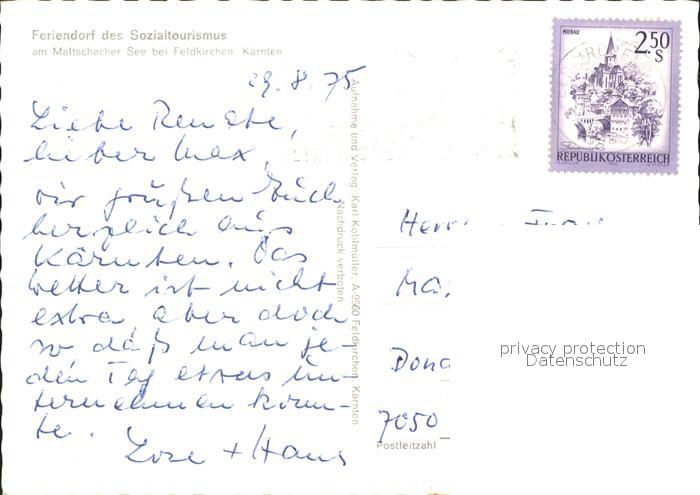 Feriendorf des Sozialtourismus
am Maltschacher See bei Feldkirchen, Kärnten
29. 8. 75
Liebe Renate,
lieber Max,
wir grüßen Euch
herzlich aus
Kärnten. Das
Wetter ist nicht
extra, aber doch
so, daß man je-
den Tag etwas un-
ternehmen konn-
te.
Hans
Aufnahme und Verlag: Karl Kohlmüller, A-9560 Feldkirchen, Kärnten
Nachdruck verboten
MURAU
2.50
S
REPUBLIK ÖSTERREICH
Herrn Frau
Ma
Dona
7050
Postleitzahl
privacy protection
Datenschutz